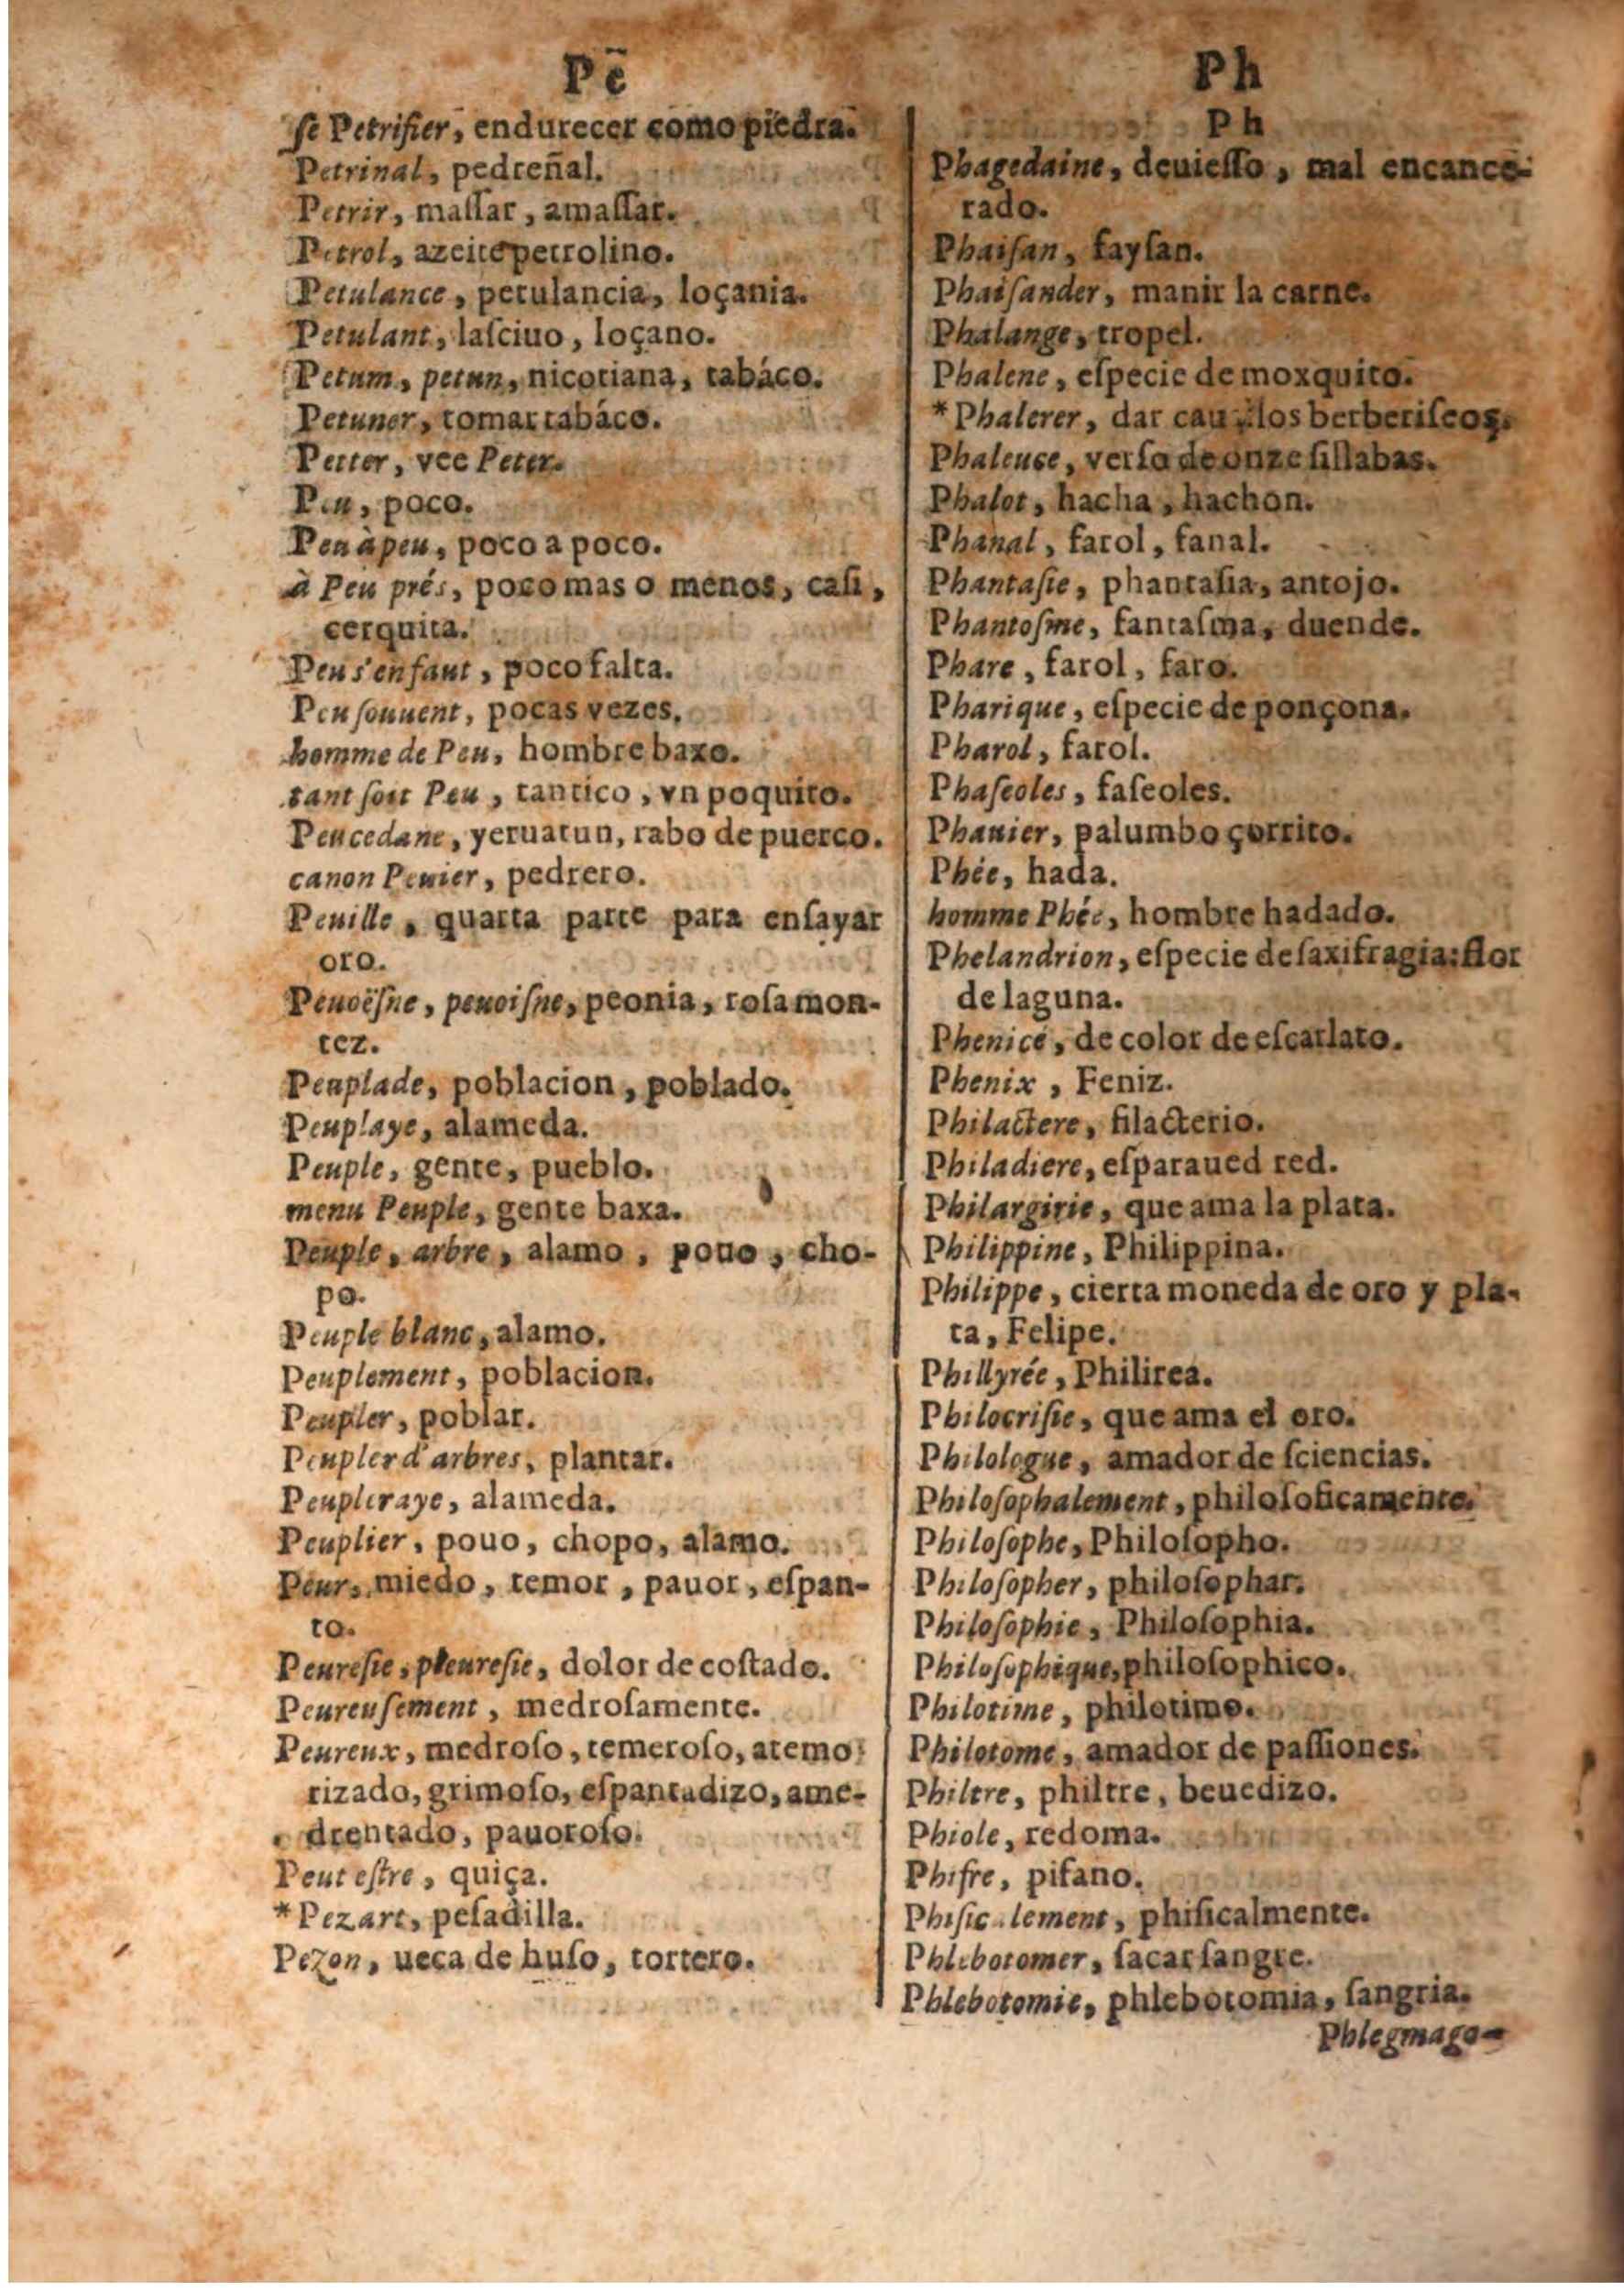 Pe
ſe Petrifier, endurecer como piedra.
Petrinal, pedreñal.
Petrir, maſſar, amaſſar.
Petrol, azeite petrolino.
Petulance, petulancia, loçania.
Petulant, laſciuo, loçano.
Petum, petun, nicotiana, tabáco.
Petuner, tomar tabáco.
Petter, vee Peter.
Peu, poco.
Peu à peu, poco a poco.
à Peu prés, poco mas o menos, caſi,
cerquita.
Peu s'en faut, poco falta.
Peu ſouuent, pocas vezes.
homme de Peu, hombre baxo.
tant ſoit Peu, tantico, vn poquito.
Peucedane, yeruatun, rabo de puerco.
canon Peuier, pedrero.
Peuille, quarta parte para enſayar
oro.
Peuoëſne, peuoiſne, peonia, roſa mon-
tez.
Peuplade, poblacion, poblado.
Peuplaye, alameda.
Peuple, gente, pueblo.
menu Peuple, gente baxa.
Peuple, arbre, alamo, pouo, cho-
po.
Peuple blanc, alamo.
Peuplement, poblacion.
Peupler, poblar.
Peupler d'arbres, plantar.
Peupleraye, alameda.
Peuplier, pouo, chopo, alamo.
Peur, miedo, temor, pauor, eſpan-
to.
Peureſie, pleureſie, dolor de coſtado.
Peureuſement, medroſamente.
Peureux, medroſo, temeroſo, atemo
rizado, grimoſo, eſpantadizo, ame-
drentado, pauoroſo.
Peut eſtre, quiça.
*Pezart, peſadilla.
Pezon, ueca de huſo, tortero.
Ph
Ph
Phagedaine, deuieſſo, mal encance-
rado.
Phaiſan, fayſan.
Phaiſander, manir la carne.
Phalange, tropel.
Phalene, eſpecie de moxquito.
*Phalerer, dar los berberiſcos.
Phaleuce, verſo de onze ſillabas.
Phalot, hacha, hachon.
Phanal, farol, fanal.
Phantaſie, phantaſia, antojo.
Phantoſme, fantaſma, duende.
Phare, farol, faro.
Pharique, eſpecie de ponçona.
Pharol, farol.
Phaſeoles, faſeoles.
Phauier, palumbo çorrito.
Phée, hada.
homme Phée, hombre hadado.
Phelandrion, eſpecie de ſaxifragia: flor
de laguna.
Phenicé, de color de eſcarlato.
Phenix, Feniz.
Philactere, filacterio.
Philadiere, eſparaued red.
Philargirie, que ama la plata.
Philippine, Philippina.
Philippe, cierta moneda de oro y pla-
ta, Felipe.
Phillyrée, Philirea.
Philocriſie, que ama el oro.
Philologue, amador de ſciencias.
Philoſophalement, philoſoficamente.
Philoſophe, Philoſopho.
Philoſopher, philoſophar.
Philoſophie, Philoſophia.
Philoſophique, philoſophico.
Philotime, philotimo.
Philotome, amador de paſſiones.
Philtre, philtre, beuedizo.
Phiole, redoma.
Phifre, pifano.
Phiſicalement, phiſicalmente.
Phlebotomer, ſacar ſangre.
Phlebotomie, phlebotomia, ſangria.
Phlegmago-